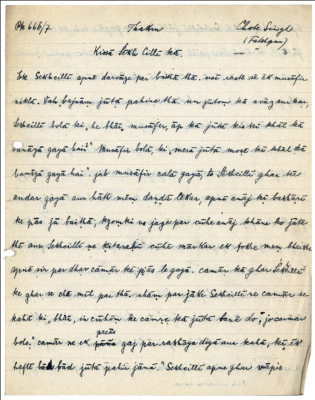 PK 666/7 Thakur Chote Singh
(Fatehganj)
Kissā Sekh Cillī kā.
Ek Sekhcillī apne darvāze par baiṭhā thā. usī rāste se ek musāfir
niklā. vah begram jūtā pahine thā. un jūton kā avāz sunkar,
Sekhcillī bolā ki, he bhāī, musāfir, āp kā jūtā kis kī khāl kā
banāyā gayā hai? Musāfir bolā ki, "merā jūtā mose kī khāl kā
banāyā gayā hai" jab musāfir calā gayā, to Sekhcillī ghar ke
andar gayā aur hāth mẽm ḍaṇḍā lekar, apne anāj kī bakhārī
ke pās jā baiṭhā, kyomki us jagah par cūhe anāj khāne ko jāte
thē aur Sekhcillī ne kitanehī cūhe mārkar ek ṭokre mem bharke
apne sir par dhar camār ke pās le gayā. camār kā ghar Sekhcillī
ke ghar se chǝ mīl par thā. vahām par jāke Sekhcillī ne camār se
kahā ki, bhāī, in cūhon ke camṛe kā jūtā banā do," jo camār
bolā. camār ne ek gaj par rakhayā diyā aur kahā, ki, ek
hafte bād jūtā pahir jānā" Sekhcillī apne ghar vāpis